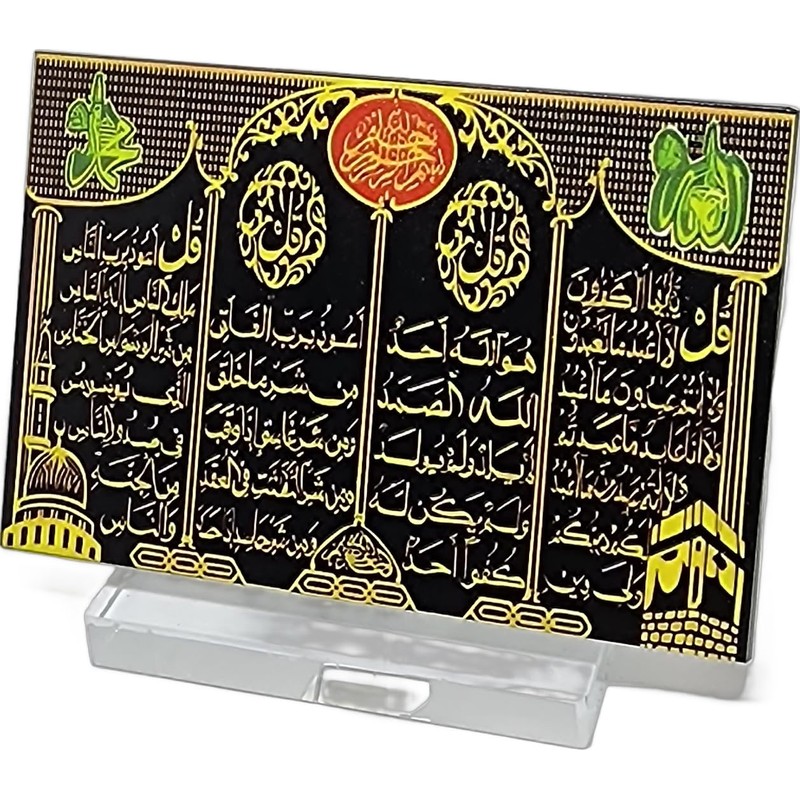 الله
بسم الله الرحمن الرحيم
محمد
قل يأيها الكفرون
لا أعبد ما تعبدون
ولا أنتم عبدون ما أعبد
ولا أنا عابد ما عبدتم
ولا أنتم عبدون ما أعبد
لكم دينكم
ولي دين
قل
هو الله أحد
الله الصمد
لم يلد ولم يولد
ولم يكن له
كفوا أحد
قل
أعوذ برب الفلق
من شر ما خلق
ومن شر غاسق إذا وقب
ومن شر النفثت في العقد
ومن شر حاسد إذا حسد
قل أعوذ برب الناس
ملك الناس إله الناس
من شر الوسواس الخناس
الذي يوسوس
في صدور الناس
من الجنة
والناس